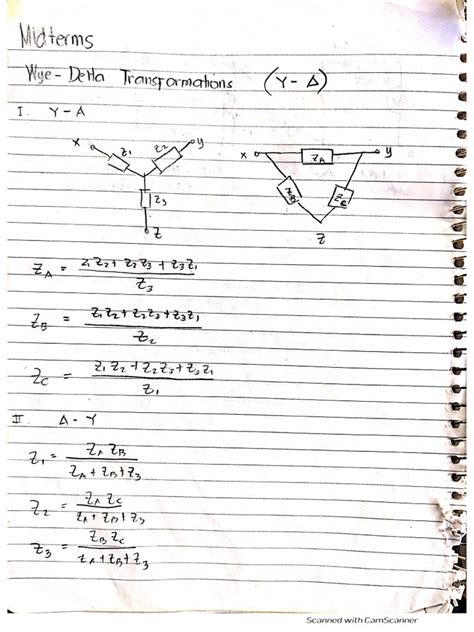 Midterms
Wye-Delta Transformations (Y-Δ)
I. Y-Δ
x Z1 Z2 y x ZA y
Z3 ZB ZC
Z Z
ZA = Z1Z2 + Z2Z3 + Z3Z1 / Z3
ZB = Z1Z2 + Z2Z3 + Z3Z1 / Z2
ZC = Z1Z2 + Z2Z3 + Z3Z1 / Z1
II Δ-Y
Z1 = ZA ZB / ZA + ZB + Z3
Z2 = ZA ZC / ZA + ZB + Z3
Z3 = ZB ZC / ZA + ZB + Z3
Scanned with CamScanner